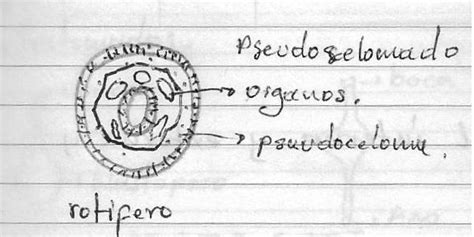 Pseudoselomado
organos.
pseudoceloma.
rotifero